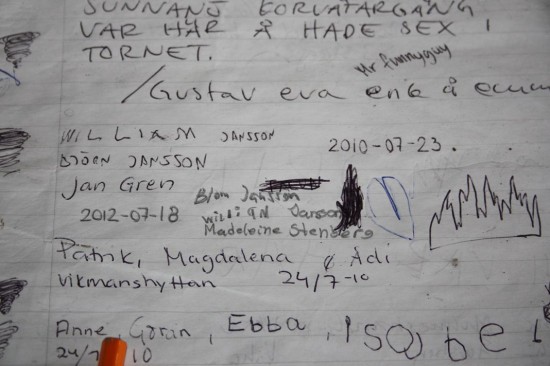 SUNNANÅ
VAR HÄR Å HADE SEX I
TORNET.
Mr funnyguy
/Gustav eva erik å
WILLIAM JANSSON 2010-07-23.
BJÖRN JANSSON
Jan Gren
2012-07-18
Madeleine Stenberg
Patrik, Magdalena & Adi
Vikmanshyttan 24/7-10
Anne, Göran, Ebba, Isabel
24/7 10